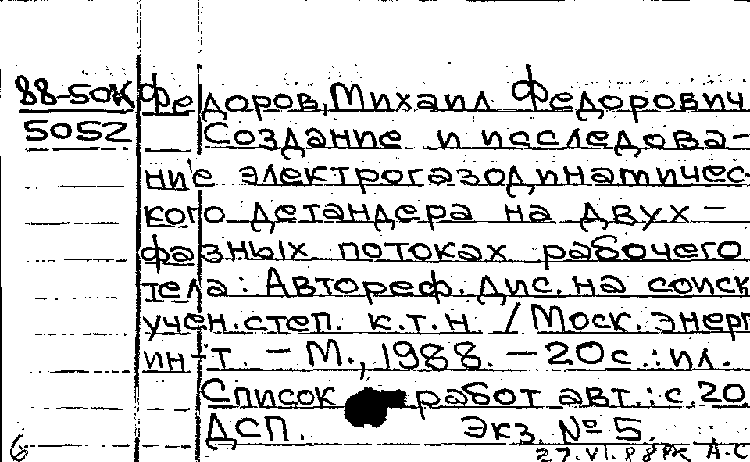 88-50к Федоров, Михаил Федорович
5052 Создание и исследова-
ние электрогазодинамичес-
кого детандера на двух-
фазных потоках рабочего
тела: Автореф. дис. на соиск
учен. степ. к.т.н. / Моск. энерг
ин-т. - М., 1988. - 20с.: ил.
Список работ авт.: с. 20
ДСП. Экз. № 5.
6 27.VI.88 А.С